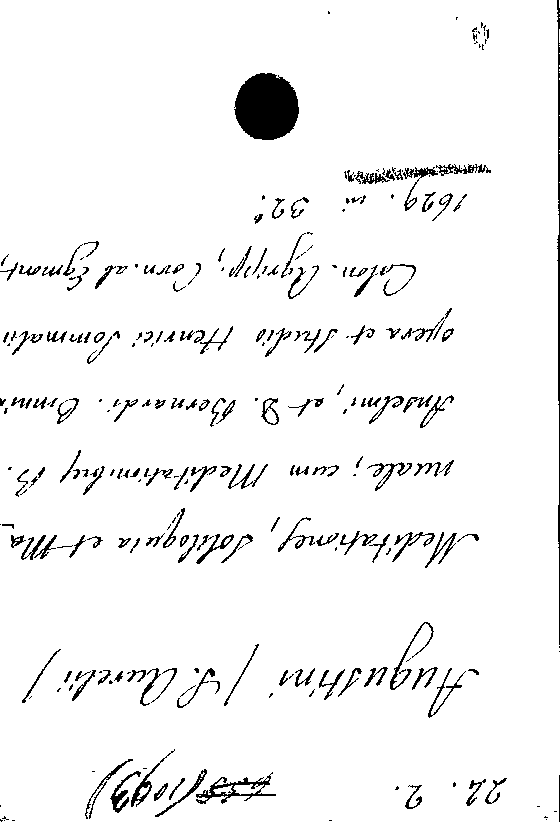 22. 2. (1093)
Augustini (S. Aurelii)
Meditationes, Soliloquia et Ma_
nuale; cum Meditationibus B.
Anselmi, et D. Bernardi. Omnia
opera et studio Henrici Sommalii
Colon. Agripp., Corn. ab Egmont,
1629. in 32°.